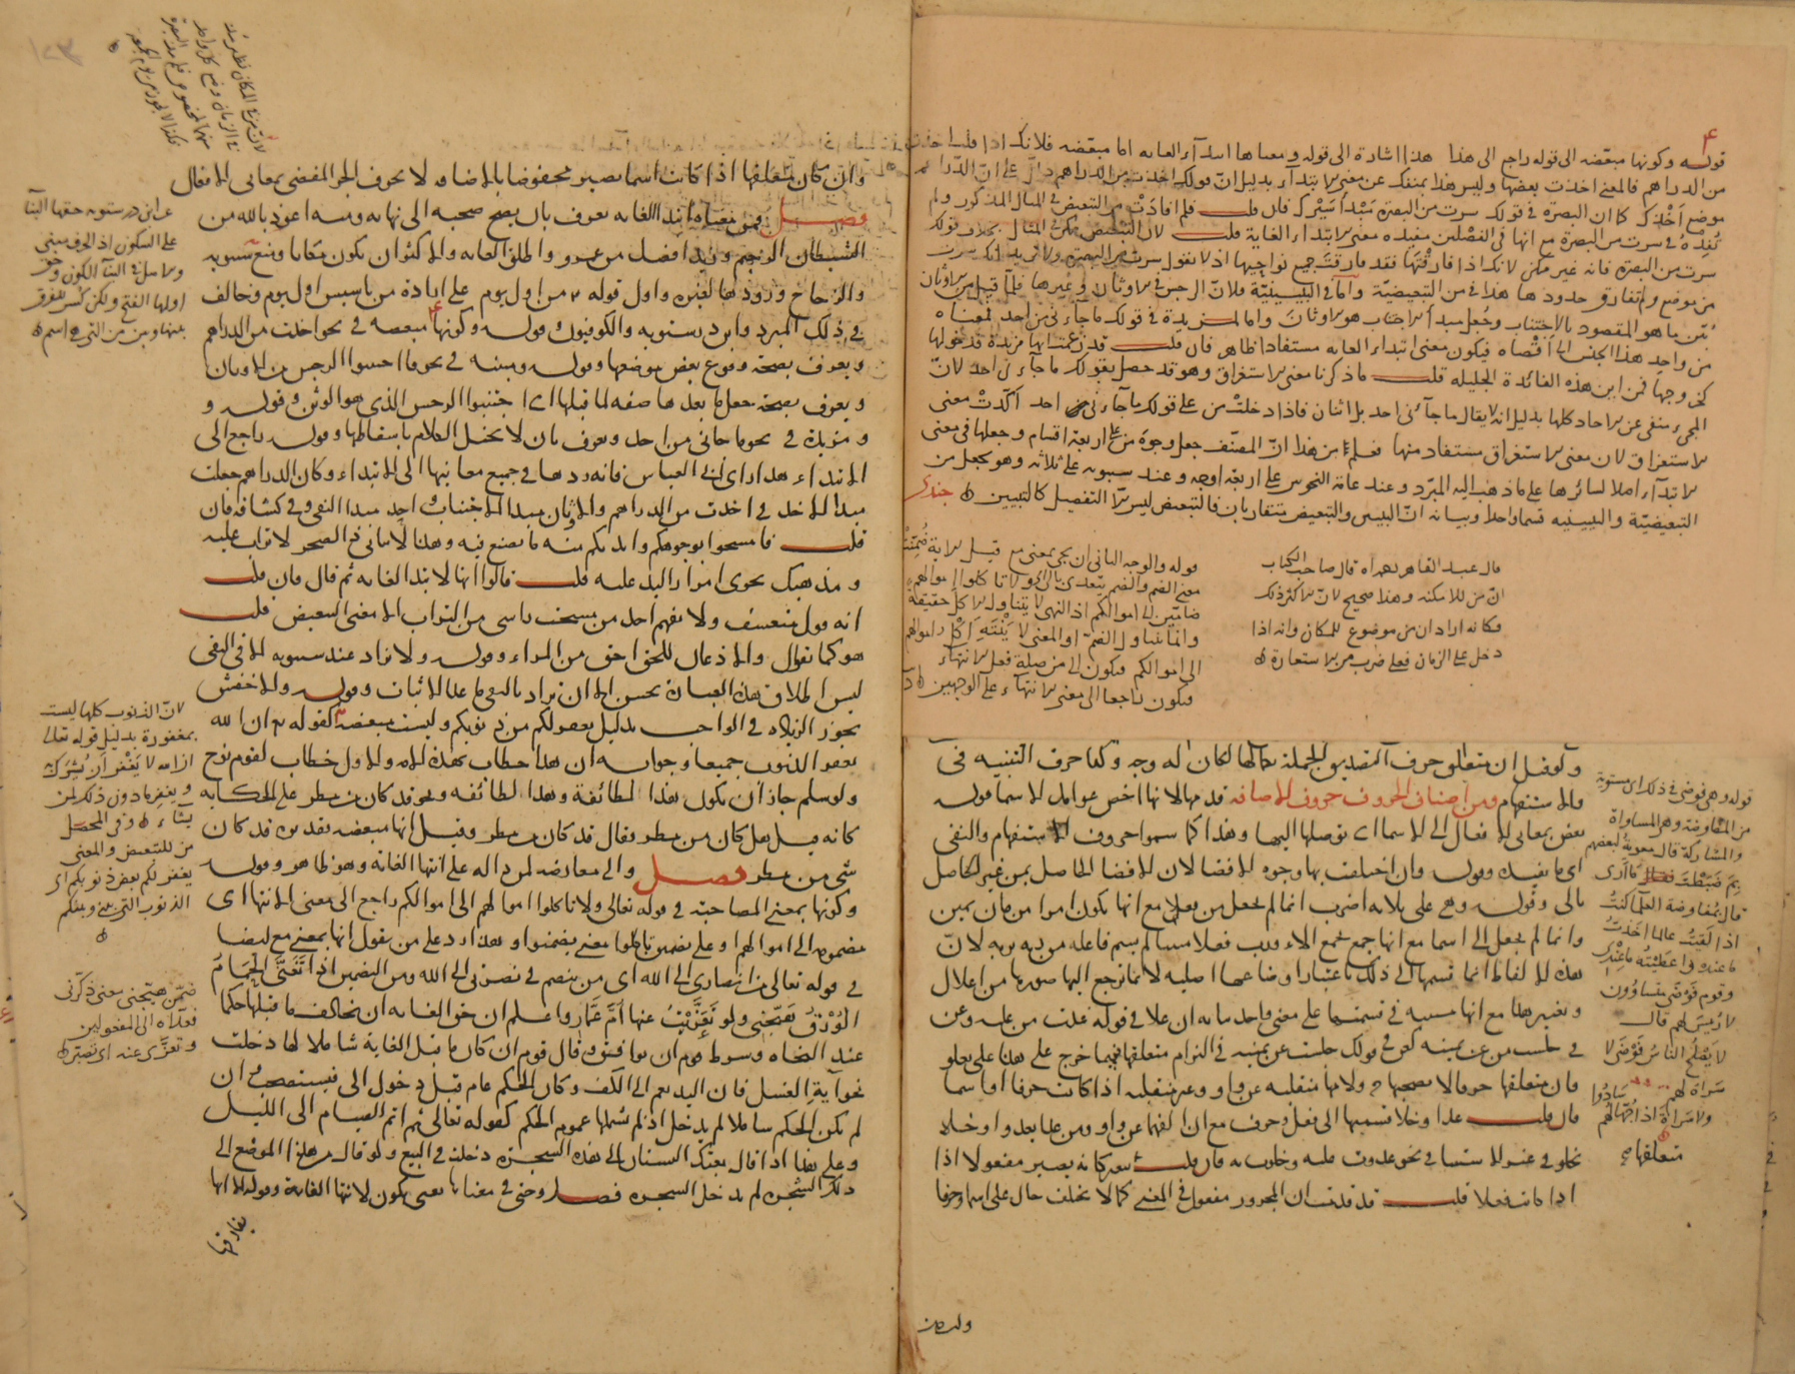 قوله وكونها مبعّضه الى قوله راجع الى هذا هذا اشارة الى قوله ومعناها ابتدآء الغايه اما مبعّضه فلانك اذا قلت اخذت
من الدراهم فالمعنى اخذت بعضها وليس هذا بمنفك عن معنى الابتدآء بدليل ان قولك اخذت من الدراهم دالّ على انّ الدراهم
موضع اخذك كما ان البصرة في قولك سرت من البصرة مبدأ سيرك فان قلت فلم افادت من التبعيض في المثال المذكور ولم
تفده في سرت من البصرة مع انها في الفصلين مفيده معنى الابتداء الغاية قلت لان التبعيض ممكن في المثال بخلاف قولك
سرت من البصرة فانه غير ممكن لانك اذا فارقتها فقد فارقت جميع نواحيها اذ لا تقول سرت من البصرة
من موضع ولم تفارق حدودها هذا في من التبعيضيّة وامّا في التبيينيّة فلانّ الرجس في الاوثان وغيرها فلمّا قيل من الاوثان
بيّن ما هو المقصود بالاجتناب وجُعل مبدأ الاجتناب هو الاوثان واما المزيدة في قولك ما جآءني من احد فمعناه
من واحد هذا الجنس الى اقصاه فيكون معنى ابتداء الغايه مستفادا ظاهر فان قلت قد زعمت انها مزيدة فدخولها
كخروجها فمن اين هذه الفائدة الجليله قلت ما ذكرنا معنى الاستغراق وهو قد حصل بقولك ما جآءني احد لانّ
المجىء منفى عن الآحاد كلها بدليل انه لا يقال ما جآءنى احد بل اثنان فاذا دخلت من على قولك ما جآءنى احد اكّدت معنى
الاستغراق لان معنى الاستغراق مستفاد منها فعلم من هذا انّ المصنّف جعل وجوه من على اربعة اقسام وجعلها في معنى
الابتدآء اصلا لسائرها على ما ذهب اليه المبرّد وعند عامّة النحويين على اربعة اوجه وعند سيبويه على ثلاثه وهو يجعل من
التبعيضيّة والتبيينيه قسما واحدا وبيانه انّ التبيين والتبعيض متقاربان فالتبعيض ليس الّا التفصيل كالتبيين
قال عبد القاهر بعد اه قال صاحب الكتاب
انّ من للامكنه وهذا صحيح لانّ الاكثر ذلك
فكانه اراد ان من موضوع للمكان وانه اذا
دخل على الزمان فعلى ضرب من الاستعارة
قوله والوجه الثانى ان تجى بمعنى مع قيل الآية ضُمّنت
معنى الضم والضم يتعدى بالى ولا تاكلوا اموالهم
ضامّين الى اموالكم اذ النهى لا يتناول الاكل حقيقة
وانما يتناول الضمّ او المعنى لا ينته اكل اموالهم
الى اموالكم فيكون الى من صلة فعل الانتهآء
فيكون راجعا الى معنى الانتهآء على الوجهين
ولو قيل ان متعلق حرف التصديق الجملة بحالها لكان له وجه وكذا حرف التنبيه في
والاستفهام ومن اصناف الحروف حروف الاضافه قدمها لانها اخص عوامل الاسما قوله
تفض بمعانى الافعال الى الاسما اى توصلها اليها وهذا كما سموا حروف الاستفهام والنفى
اى ما يفيده وقوله وان اختلفت بها وجوه الافضا لان الافضا الحاصل بمن غير الحاصل
بالى وقوله وهى على ثلاثه اضرب انما لم يجعل من بعلى مع انها تكون امرا من مان يمين
وانما لم يجعل الى اسما مع انها جمع بمعنى الالاء ورب فعلا مبنيا لما لم يسم فاعله من ربه يربه لانّ
هذه الالفاظ انما قسمها الى ذلك باعتبار اوضاعها اصليه لا بما ترجع اليها صورها من اعلال
وتغيير هذا مع انها مبنيه في قسمتها على معنى واحد بيانه ان علا في قوله غدت من عليه وعن
في جلست من عن يمينه كهو في قولك جلست عن يمينه في التزام متعلقها فيما خرج على هذا على يعلو
فان متعلقها حرفا لا يصحبها ولامها منقلبه عن واو وغير منقلبه اذا كانت حرفا او اسما
فان قلت عدا وخلا قسمتهما الى فعل وحرف مع ان الفهما عن واو ومن عدا يعدو او خلا
يخلو في غير الاستثنا في نحو عدوت عليه وخلوت به فان قلت كانه يصير مفعولا اذا
اذا كانت فعلا قلت قد قدمت ان المجرور مفعول في المعنى كما لا يختلف حال على اسما وحرفا
قوله وهى فوضى في ذلك اى مستوية
من المفاوضة وهى المساواة
والمشاركة قال معوية لبعضهم
بم ضبطت ما ارى
قال بمفاوضة العلماء كنت
اذا لقيت عالما اخذت
ما عنده واعطيته ما عندى
وقوم فوضى متساوون
لا رئيس لهم قال
لا يصلح الناس فوضى لا
سراة لهم
ولا سراة اذا جهّالهم سادوا
متعلقها
ولى من
وان كان متعلقها اذا كانت اسما يصير مخفوضا بالاضافه لا بحرف الجر المفضى بمعانى الافعال
فصل فمن معناها ابتدا الغايه يعرف بان يصح صحبه الى نهايه ومنه اعوذ بالله من
الشيطان الرجيم وزيد افضل من عمرو والمطلق الغايه والاكثر ان يكون مكانا ومنع سيبويه
والزجاج ورودها لغيره واول قوله من اول يوم على ارادة من تاسيس اول يوم وخالف
في ذلك المبرد وابن درستويه والكوفيون قوله وكونها مبعضه في نحو اخذت من الدراهم
ويعرف بصحة وقوع بعض موضعها وقوله ومبينه في نحو فاجتنبوا الرجس من الاوثان
ويعرف بصحة جعل ما بعدها صفه لما قبلها اى اجتنبوا الرجس الذى هو الوثن وقوله و
ومزيدة في نحو ما جانى من احد ويعرف بان لا يختل الكلام باسقاطها وقوله راجع الى
الابتداء هذا راى ابى العباس فانه ردها في جميع معانيها الى الابتداء وكان الدراهم جعلت
مبدا الاخذ في اخذت من الدراهم والاوثان مبدا الاجتناب واحد مبدا النفى وفي كشافه فان
قلت فامسحوا بوجوهكم وايديكم منه ما يصنع فيه وهذا لا ياتى في الصخر لا تراب عليه
ومذهبك نحوى امرار اليد عليه قلت قالوا انها لابتدا الغايه ثم قال فان قلت
انه قول متعسف ولا يفهم احد من مسحت راسى من التراب الا معنى التبعيض قلت
هو كما تقول والاذعان للحق احق من المراء وقوله ولا تزاد عند سيبويه الا في النفى
ليس اطلاق هذه العبارة بحسن الا ان يراد بالنفى ما عدا الاثبات وقوله والاخفش
يجوز الزياده في الواجب بدليل يغفر لكم من ذنوبكم وليست مبعضه لقوله تع ان الله
يغفر الذنوب جميعا وجوابه ان هذا خطاب لهذه الامه والاول خطاب لقوم نوح
ولو سلم جاز ان يكون هذا لطائفة وهذا لطائفه ونحو قد كان من مطر على الحكايه
كانه قيل هل كان من مطر فقال قد كان من مطر وقيل انها مبعضه بتقديره قد كان
شى من مطر فصل والى معارضه لمن دالة على انتها الغايه وهو ظاهر وقوله
وكونها بمعنى المصاحبة في قوله تعالى ولا تاكلوا اموالهم الى اموالكم راجع الى معنى الانتها اى
مضمومه الى اموالهم او على تضمين تاكلوا معنى تضمنوا وهذا رد على من يقول انها بمعنى مع ايضا
في قوله تعالى من انصارى الى الله اى من ينصرنى في نصرتى الى الله ومن التضمين اذا تغنّى الحمام
الورق هيّجنى ولو تعزّيت عنها امّ عمّار واعلم ان حق الغايه ان يخالف ما قبلها حكما
عند النحاه وشرط قوم ان يوافقه وقال قوم ان كان ما قبل الغاية شاملا لها دخلت
نحو آية الغسل فان اليد تعم الى الكتف وكان الحكم عام قبل دخول الى فيستصحب وان
لم يكن الحكم شاملا لم يدخل اذ لم يشملها عموم الحكم كقوله تعالى ثم اتم الصيام الى الليل
وعلى هذا اذا قال بعتك البستان الى هذه الشجره دخلت في البيع ولو قال من هذا الموضع الى
ذلك الشجره لم يدخل الشجره فصل وحتى في معناها يعنى يكون لانتها الغاية وقوله الا انها
تفارقها
لانّ من في المكان نظير مذ
في الزمان
عن ابن درستويه حقها البنآ
على السكون اذ الحرف مبنى
والاصل في البنآ السكون وحق
اولها الفتح ولكن كسر للفرق
بينها وبين من التى هى اسم
لانّ الذنوب كلها ليست
بمغفورة بدليل قوله تعالى
ان الله لا يغفر ان يشرك
ويغفر ما دون ذلك لمن
يشآء وفي المحصّل
من للتبعيض والمعنى
يغفر لكم بعض ذنوبكم اى
الذنوب التى بينى وبينكم
ضمّن هيّجنى معنى ذكّرنى
فعدّاه الى المفعولين
وتعزّى عنه اى تصبّر